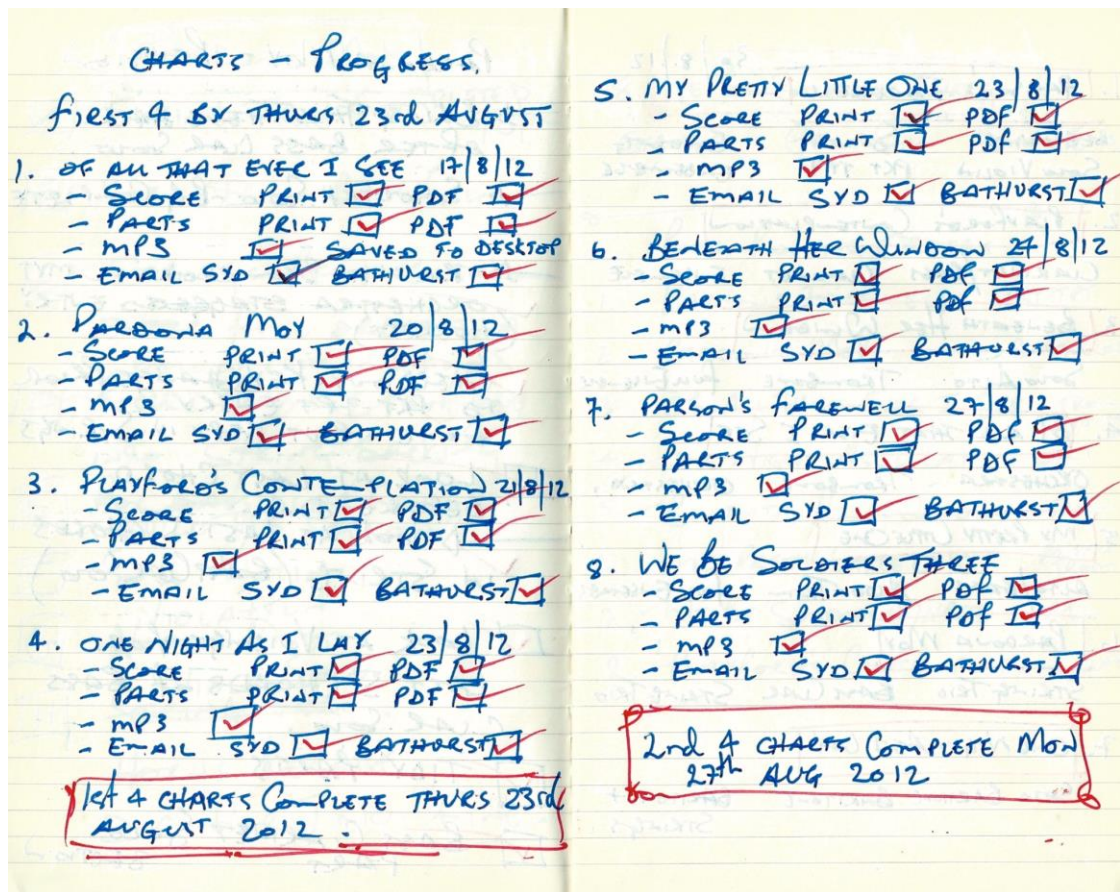 CHARTS – PROGRESS.
FIRST 4 BY THURS 23rd AUGUST
1. OF ALL THAT EVER I SEE 17/8/12
- SCORE PRINT PDF
- PARTS PRINT PDF
- MP3 SAVED TO DESKTOP
- EMAIL SYD BATHURST
2. PARDONA MOY 20/8/12
- SCORE PRINT PDF
- PARTS PRINT PDF
- MP3
- EMAIL SYD BATHURST
3. PLAYFORD'S CONTEMPLATION 21/8/12
- SCORE PRINT PDF
- PARTS PRINT PDF
- MP3
- EMAIL SYD BATHURST
4. ONE NIGHT AS I LAY 23/8/12
- SCORE PRINT PDF
- PARTS PRINT PDF
- MP3
- EMAIL SYD BATHURST
1st 4 CHARTS COMPLETE THURS 23rd
AUGUST 2012.
5. MY PRETTY LITTLE ONE 23/8/12
- SCORE PRINT PDF
- PARTS PRINT PDF
- MP3
- EMAIL SYD BATHURST
6. BENEATH HER WINDOW 24/8/12
- SCORE PRINT PDF
- PARTS PRINT PDF
- MP3
- EMAIL SYD BATHURST
7. PARSON'S FAREWELL 27/8/12
- SCORE PRINT PDF
- PARTS PRINT PDF
- MP3
- EMAIL SYD BATHURST
8. WE BE SOLDIERS THREE
- SCORE PRINT PDF
- PARTS PRINT PDF
- MP3
- EMAIL SYD BATHURST
2nd 4 CHARTS COMPLETE MON
27th AUG 2012